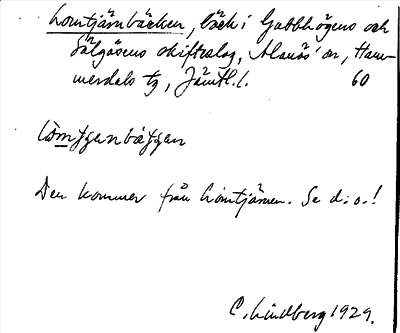 Lomtjärnbäcken, bäck i Gubbhögens och
Sälgåsens skifteslag, Alanäs' sn, Ham-
merdals tg, Jämtl. l. 60
Den kommer från Lomtjärnen. Se d. o.!
C. Lindberg 1929.